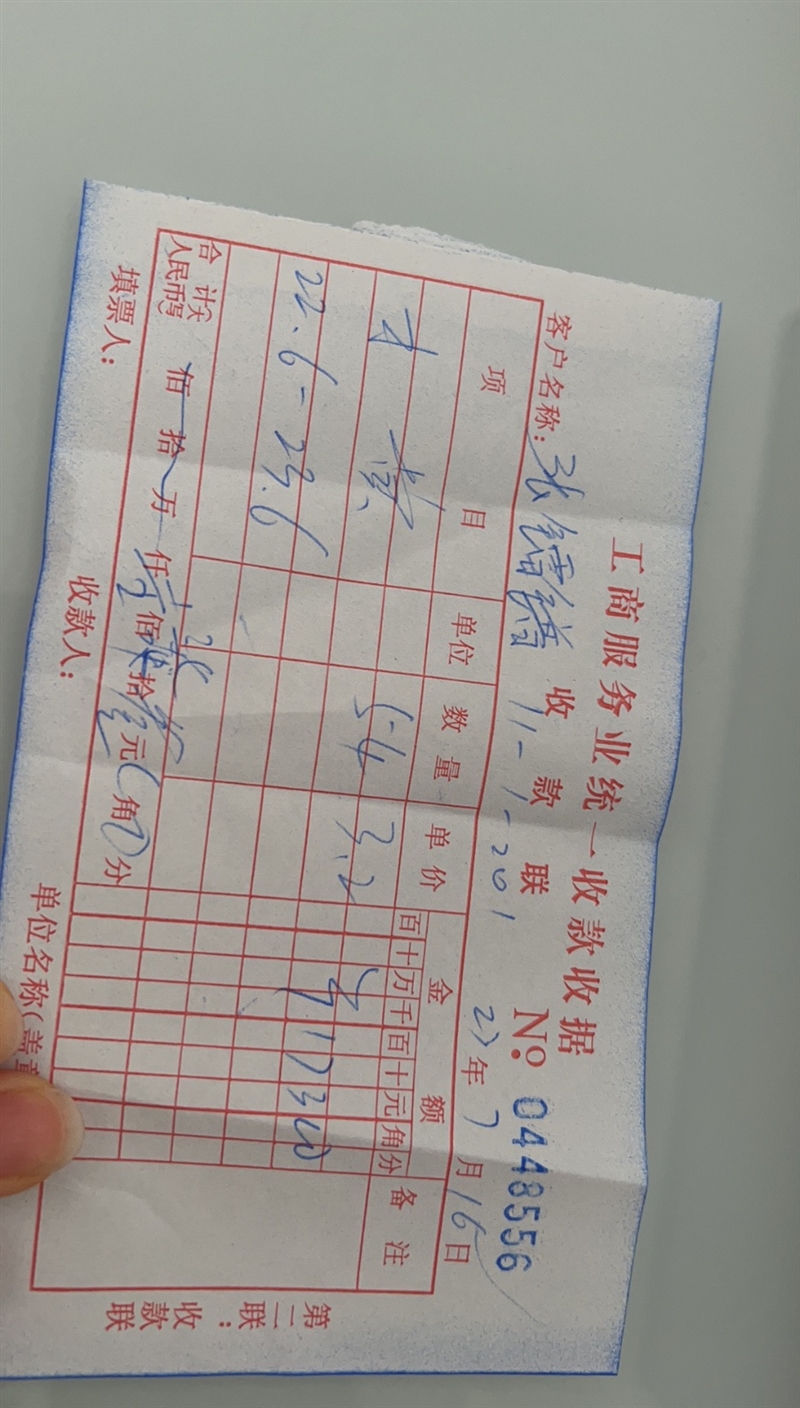 工商服务业统一收款收据
收款联 No. 0448556
客户名称: 张 11-1-201 23年7月16日
项目 单位 数量 单价 金额 备注
百十万千百十元角分
水费 54 3.2
22.6-23.6 ¥1730
合计 人民币(大写) 佰拾万仟壹佰柒拾叁元0角0分
填票人: 收款人: 单位名称(盖章
第二联:收款联